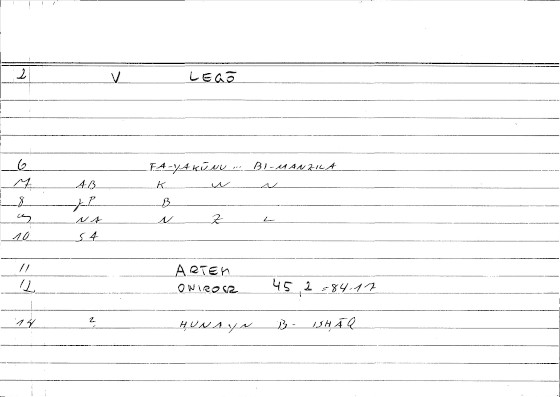 2 V LEGŌ
6 FA-YAKŪNU... BI-MANZILA
M AB K W N
8 JP B
9 NA N Z L
10 SA
11 ARTEM
12 ONIROCR 45,2 = 84.17
14 2 HUNAYN B- ISḤĀQ